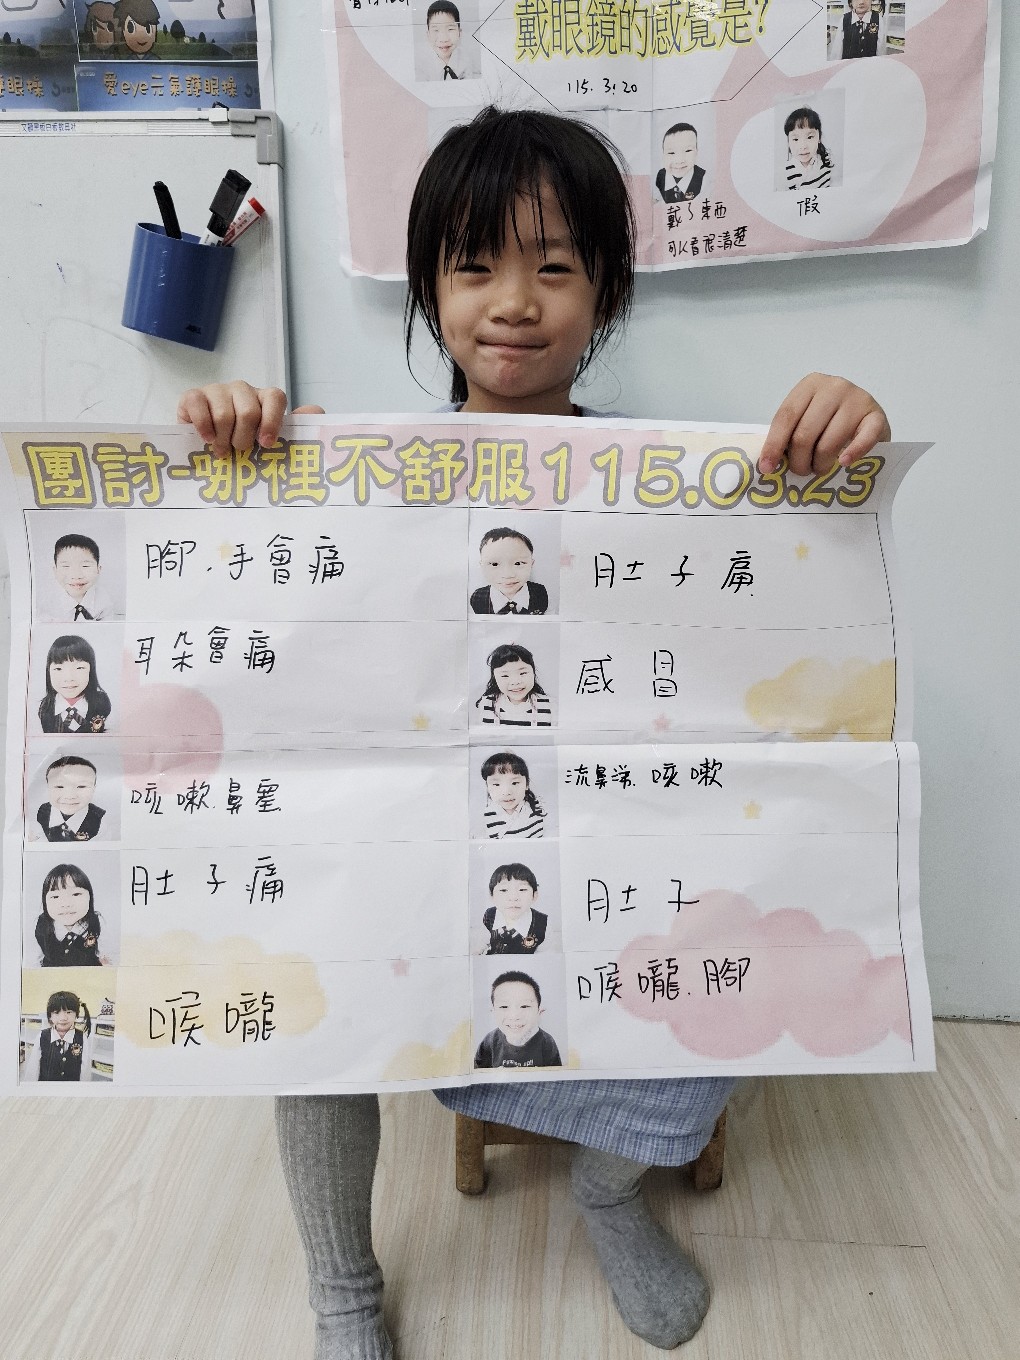 愛eye元氣護眼操
戴眼鏡的感覺是?
115.3.20
戴了東西
可以看很清楚
假
團討-哪裡不舒服115.03.23
腳、手會痛
肚子痛
耳朵會痛
感冒
咳嗽.鼻塞
流鼻涕.咳嗽
肚子痛
肚子
喉嚨
喉嚨.腳